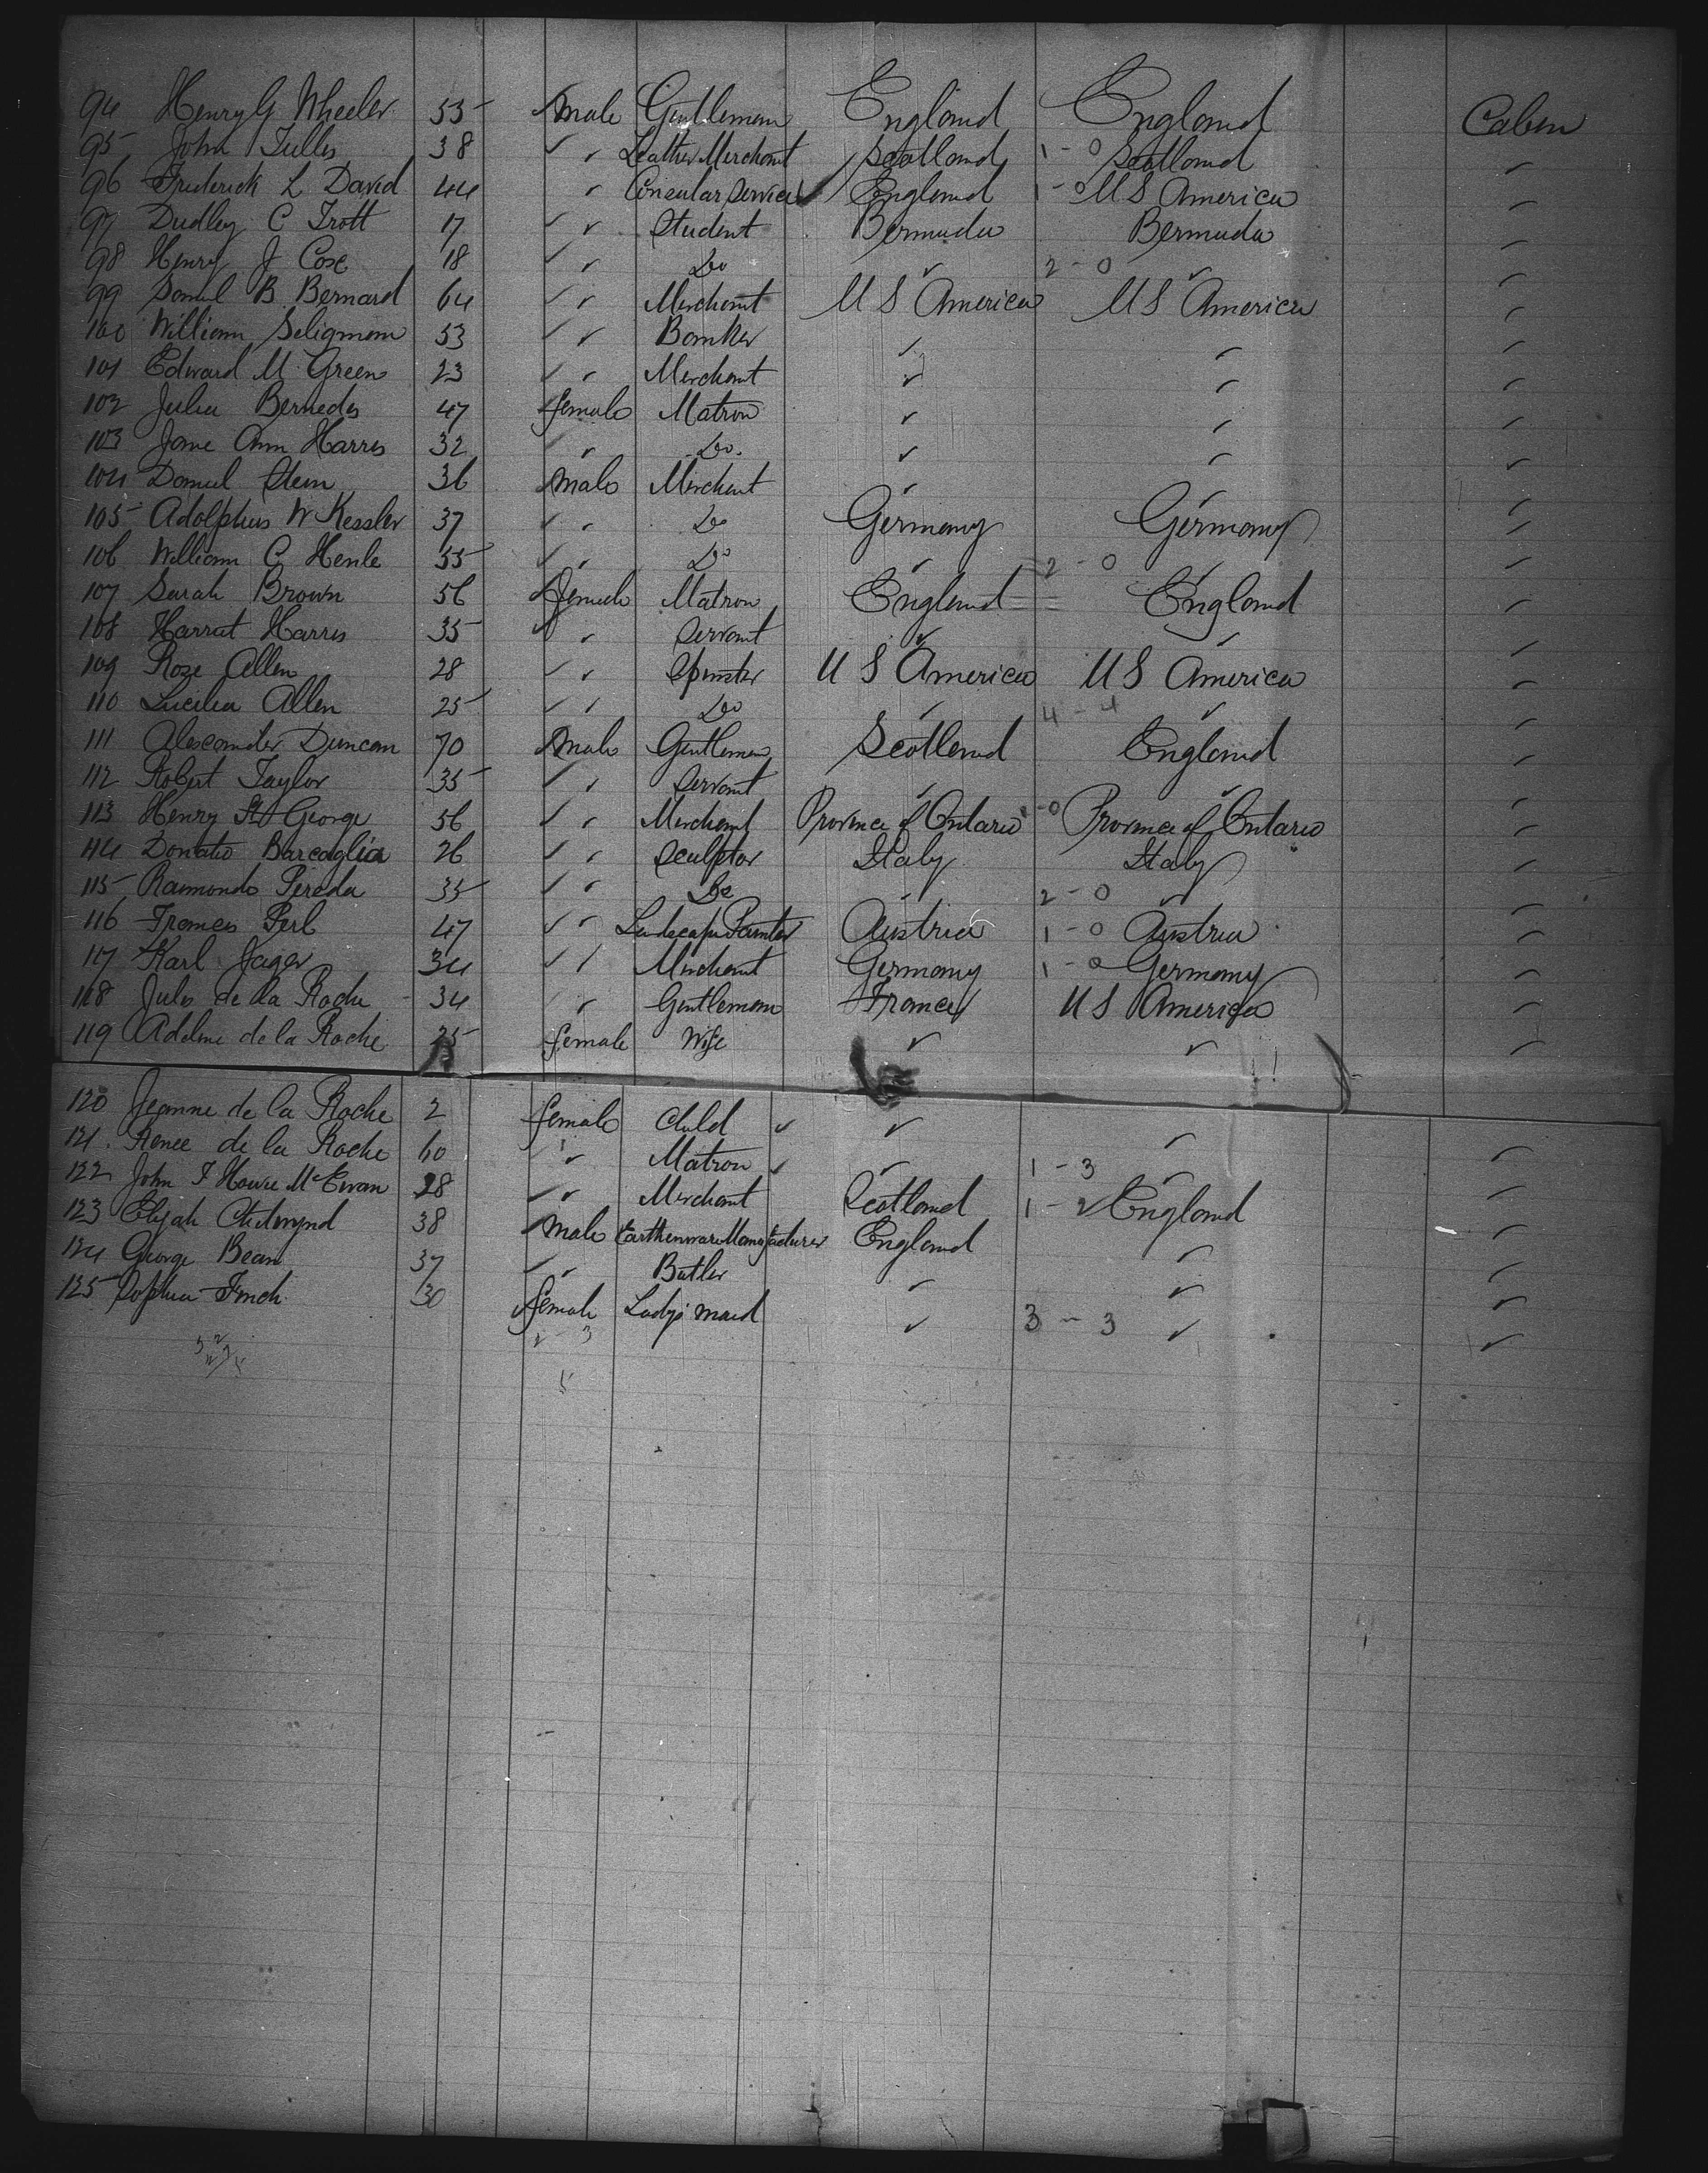 94 Henry G Wheeler 55 Male Gentleman England England Cabin
95 John Tullis 38 ✓ ✓ Leather Merchant Scotland 1-0 Scotland ✓
96 Frederick L David 44 ✓ Consular Service England 1-0 U S America ✓
97 Dudley C Trott 17 ✓ Student Bermuda Bermuda ✓
98 Henry J Cox 18 ✓ ✓ Do ✓ 2-0 ✓ ✓
99 Samuel B Bernard 64 ✓ ✓ Merchant U S America U S America ✓
100 William Seligman 53 ✓ ✓ Banker ✓ ✓ ✓
101 Edward M Green 23 ✓ ✓ Merchant ✓ ✓ ✓
102 Julia 47 female Matron ✓ ✓ ✓
103 Jane Ann Harris 32 ✓ ✓ Do. ✓ ✓ ✓
104 Daniel Stein 36 Male Merchant ✓ ✓ ✓
105 Adolphus W Kessler 37 ✓ ✓ Do Germany Germany ✓
106 William C Henle 55 ✓ ✓ Do ✓ 2-0 ✓ ✓
107 Sarah Brown 56 female Matron England England ✓
108 Harriet Harris 35 ✓ ✓ Servant ✓ ✓ ✓
109 Rose Allen 28 ✓ ✓ Spinster U S America U S America ✓
110 Lucilia Allen 25 ✓ ✓ Do ✓ 4-4 ✓ ✓
111 Alexander Duncan 70 Male Gentleman Scotland England ✓
112 Robert Taylor 35 ✓ ✓ Servant ✓ ✓ ✓
113 Henry St George 56 ✓ ✓ Merchant Province of Ontario -0 Province of Ontario ✓
114 Donato Barcaglia 26 ✓ ✓ Sculptor Italy Italy ✓
115 Raimondo Pereda 35 ✓ ✓ Do ✓ 2-0 ✓ ✓
116 Frances Perl 47 ✓ ✓ Landscape Painter Austria 1-0 Austria ✓
117 Karl Jager 34 ✓ ✓ Merchant Germany 1-0 Germany ✓
118 Jules de la Roche 34 ✓ Gentleman France U S America ✓
119 Adeline de la Roche 25 female Wife ✓ ✓ ✓
120 Jeanne de la Roche 2 female Child ✓ ✓ ✓ ✓
121 Renee de la Roche 60 ✓ Matron ✓ ✓ 1-3 ✓ ✓
122 John F Howie McEwan 28 ✓ ✓ Merchant Scotland 1-2 England ✓
123 Elijah Chetwynd 38 Male Earthenware Manufacturer England ✓ ✓
124 George Bean 37 ✓ ✓ Butler ✓ ✓ ✓
125 Sophia Finch 30 female Lady's maid ✓ 3-3 ✓ ✓
2-3
5